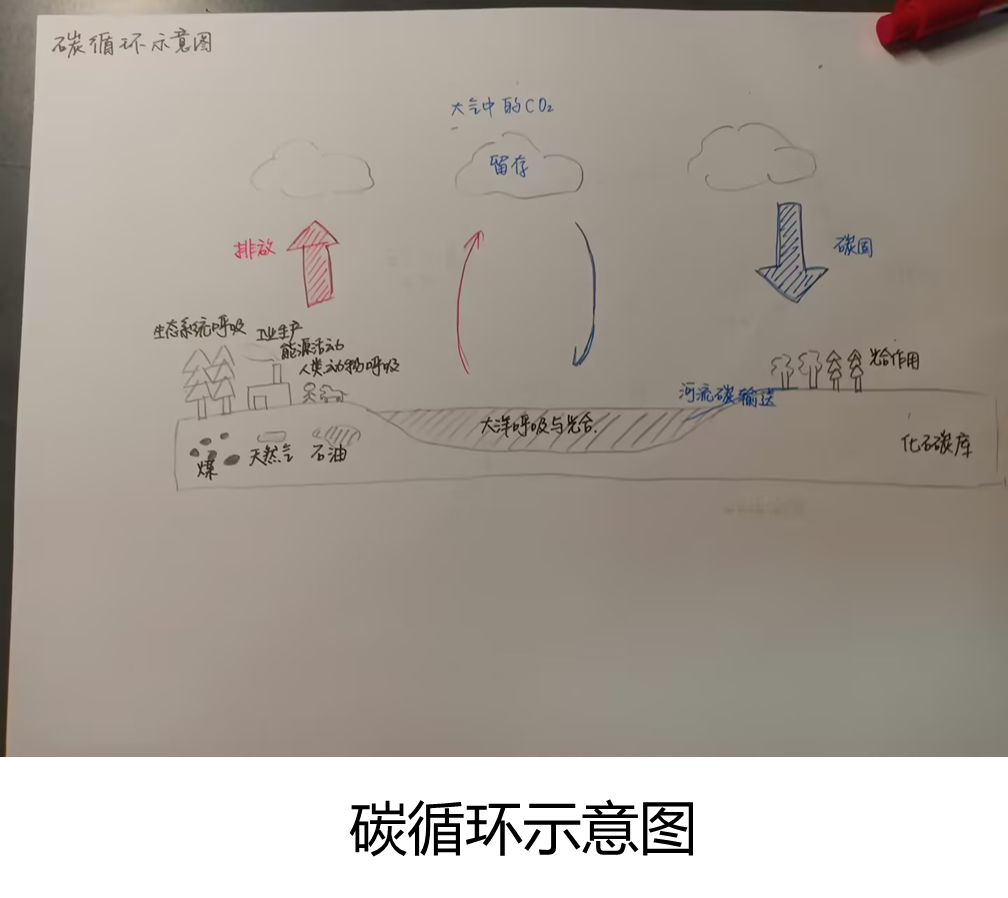 碳循环示意图
大气中的CO₂
留存
排放
碳固
生态系统呼吸
工业生产
能源活动
人类动物呼吸
光合作用
河流碳输送
大洋呼吸与光合.
煤
天然气
石油
化石碳库
碳循环示意图